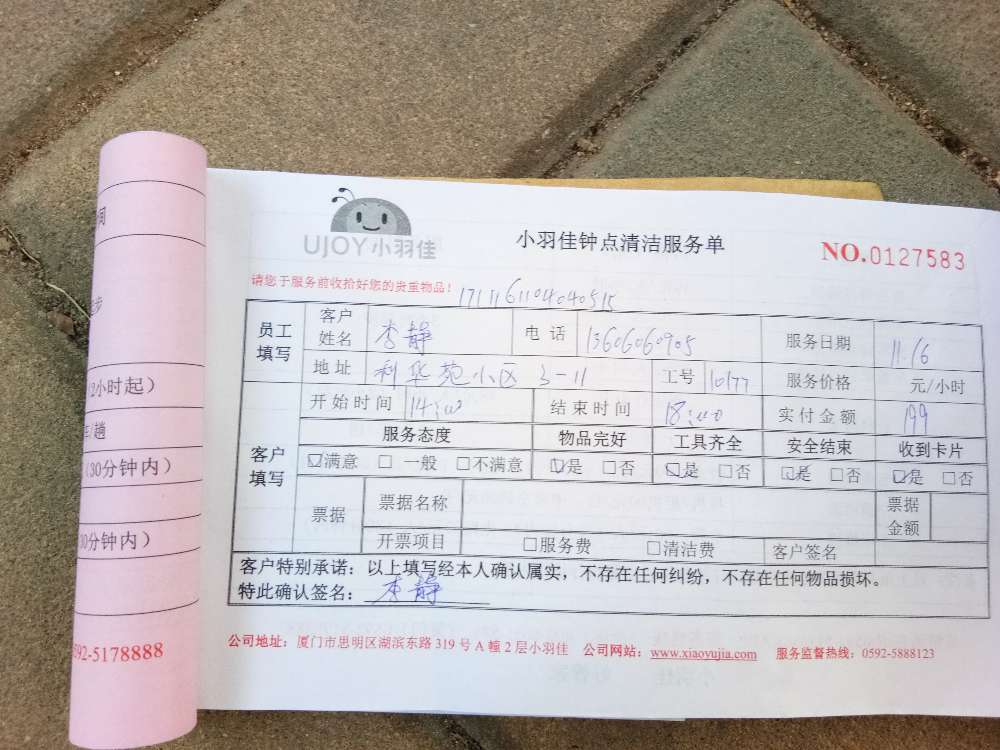 间
步
(2小时起)
趟
(30分钟内)
30分钟内)
0592-5178888
UJOY小羽佳
小羽佳钟点清洁服务单
NO.0127583
请您于服务前收拾好您的贵重物品!
员工填写 客户姓名 李静 电话 13606060905 服务日期 11.16
地址 利华苑小区 3-11 工号 10177 服务价格 元/小时
客户填写 开始时间 14:00 结束时间 18:00 实付金额 199
服务态度 物品完好 工具齐全 安全结束 收到卡片
☑满意 □一般 □不满意 ☑是 □否 ☑是 □否 ☑是 □否 ☑是 □否
票据 票据名称 票据金额
开票项目 □服务费 □清洁费 客户签名
客户特别承诺：以上填写经本人确认属实，不存在任何纠纷，不存在任何物品损坏。
特此确认签名：李静
公司地址：厦门市思明区湖滨东路319号A幢2层小羽佳 公司网站：www.xiaoyujia.com 服务监督热线：0592-5888123